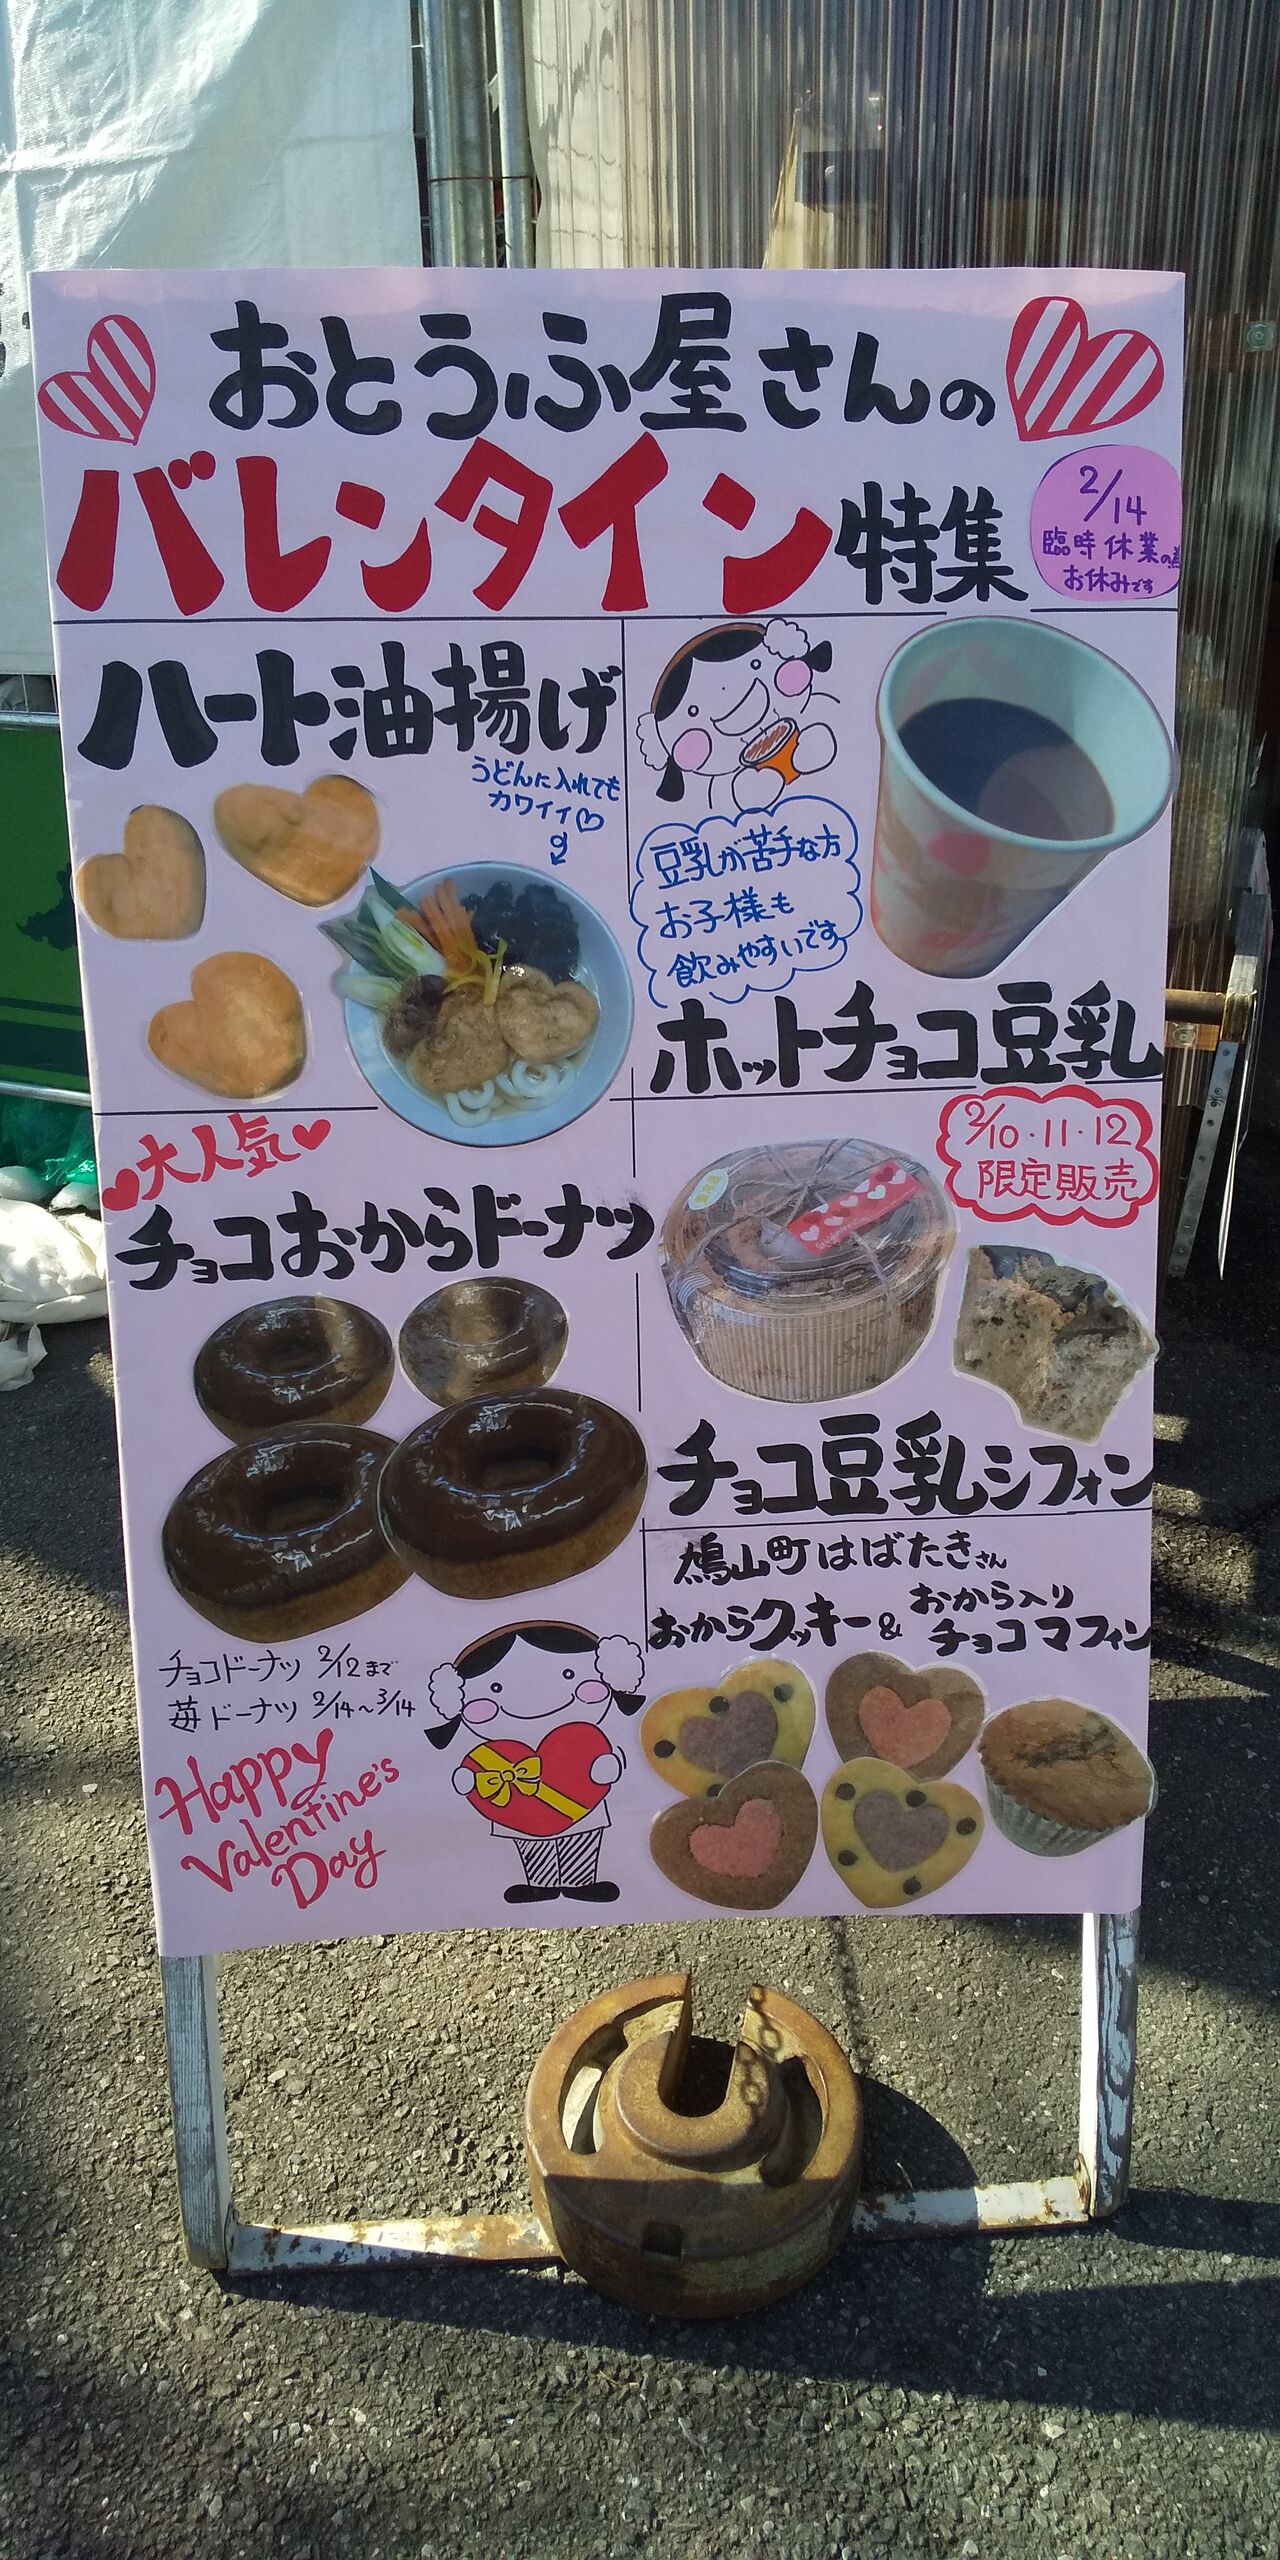 おとうふ屋さんの
バレンタイン特集
2/14
臨時休業の為
お休みです
ハート油揚げ
うどんに入れても
カワイイ♡
豆乳が苦手な方
お子様も
飲みやすいです
ホットチョコ豆乳
大人気
チョコおからドーナツ
2/10・11・12
限定販売
チョコ豆乳シフォン
チョコドーナツ 2/12まで
苺ドーナツ 2/14〜3/14
Happy
Valentine's
Day
鳩山町はばたきさん
おからクッキー&おから入り
チョコマフィン